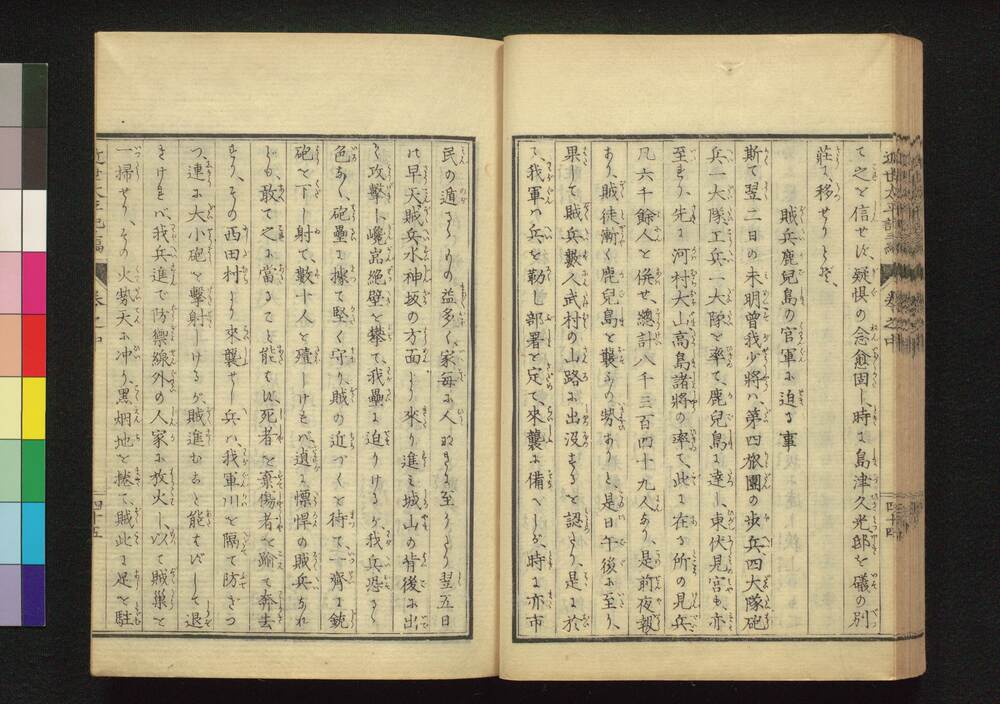 近世太平記編 巻之中 四十四
て之を信せず、疑惧の念愈固し、時に島津久光邸を礒の別
荘に移せりとぞ、
賊兵鹿兒島の官軍に迫る事
斯て翌二日の未明曽我少將ハ、第四旅團の歩兵四大隊砲
兵一大隊工兵一大隊を率て、鹿兒島に達し、東伏見宮も亦
至れり、先に河村大山高島諸將の率て、此に在る所の見兵
凡六千餘人と倂せ、總計八千三百四十九人あり、是前夜報
あり、賊徒漸く鹿兒島を襲ふの勢ありと、是日午後に至り、
果して賊兵數人武村の山路に出没するを認たり、是に於
て、我軍ハ兵を勒し部署を定て、來襲に備へしが、時に亦市
民の遁るゝもの益多く、家毎に人なきに至りたり、翌五日
の早天賊兵水神坂の方面より來り進ミ城山の背後に出
て攻擊し、巉嵓絕壁を攀て、我壘に迫りけるが、我兵恐るゝ
色なく、砲壘に據て堅く守り、賊の近づくを待て、一齊に銃
砲を下し射て、數十人を殪しけれバ、遉に慓悍の賊兵なれ
ども、敢て之に當ること能はず、死者を棄傷者を踰て奔去
せり、その西田村より來襲せし兵ハ、我軍川を隔て防ぎつ
つ、連に大小砲を擊射しけるが、賊進むこと能はずして退
きけれバ、我兵進で防禦線外の人家に放火し、以て賊巢を
一掃せり、その火勢天に冲り、黒烟地を捲て、賊此に足を駐
近世太平記編 巻之中 四十五